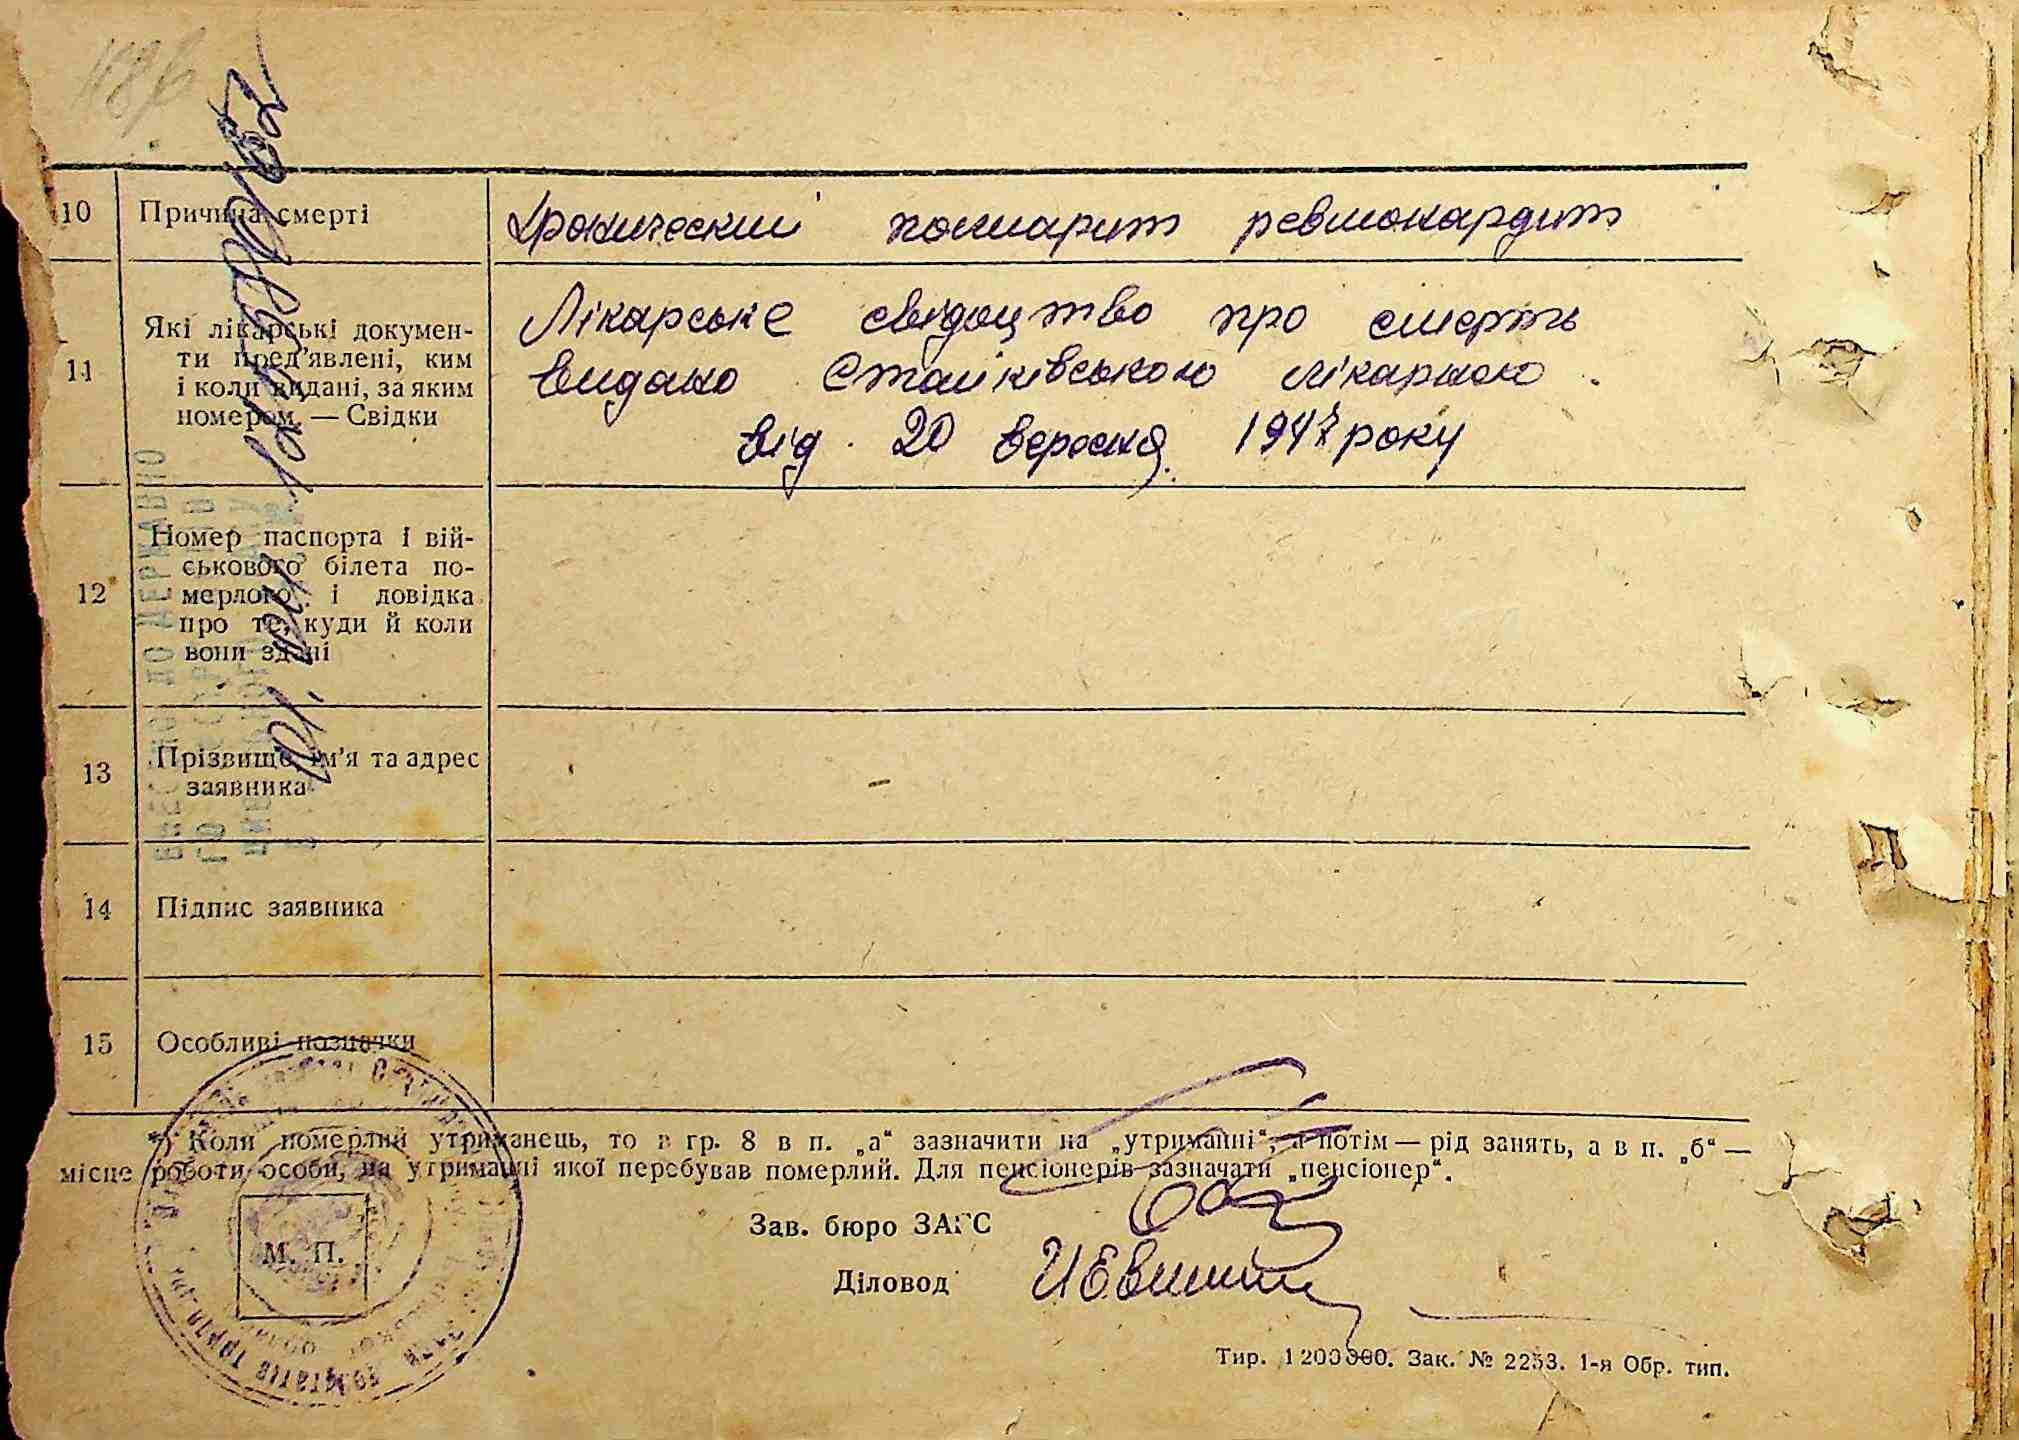 10 Причина смерті
Хронический полиарит ревмокардит
11 Які лікарські докумен-
ти пред'явлені, ким
і коли видані, за яким
номером. — Свідки
Лікарське свідоцтво про смерть
видано Стайківською лікарнею
від 20 вересня 1947 року
12 Номер паспорта і вій-
ськового білета по-
мерлого і довідка
про те, куди й коли
вони здані
13 Прізвище, ім'я та адрес
заявника
14 Підпис заявника
15 Особливі позначки
*) Коли померлий утриманець, то в гр. 8 в п. „а“ зазначити на „утриманні“, а потім — рід занять, а в п. „б“ —
місце роботи особи, на утриманні якої перебував померлий. Для пенсіонерів зазначати „пенсіонер“.
Зав. бюро ЗАГС
М. П.
Діловод
Тир. 1200000. Зак. № 2253. 1-я Обр. тип.